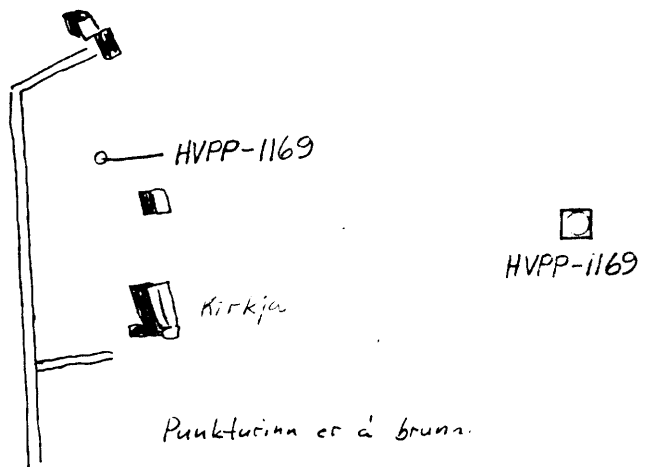 HVPP-1169
HVPP-1169
Kirkja
Punkturinn er á brunn.